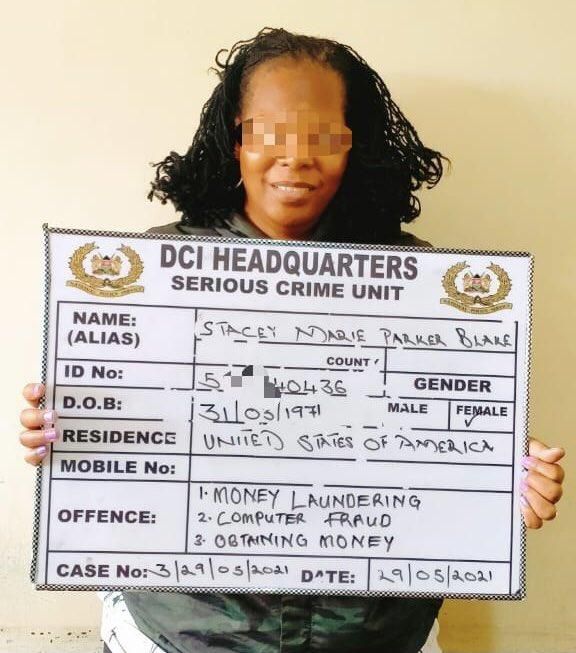 DCI HEADQUARTERS
SERIOUS CRIME UNIT
NAME: (ALIAS) STACEY MARIE PARKER BLAKE
COUNT
ID No: 5 40436
GENDER
D.O.B: 31/05/1971 MALE FEMALE ✓
RESIDENCE UNITED STATES OF AMERICA
MOBILE No:
OFFENCE: 1. MONEY LAUNDERING
2. COMPUTER FRAUD
3. OBTAINING MONEY
CASE No: 3/29/05/2021 DATE: 29/05/2021